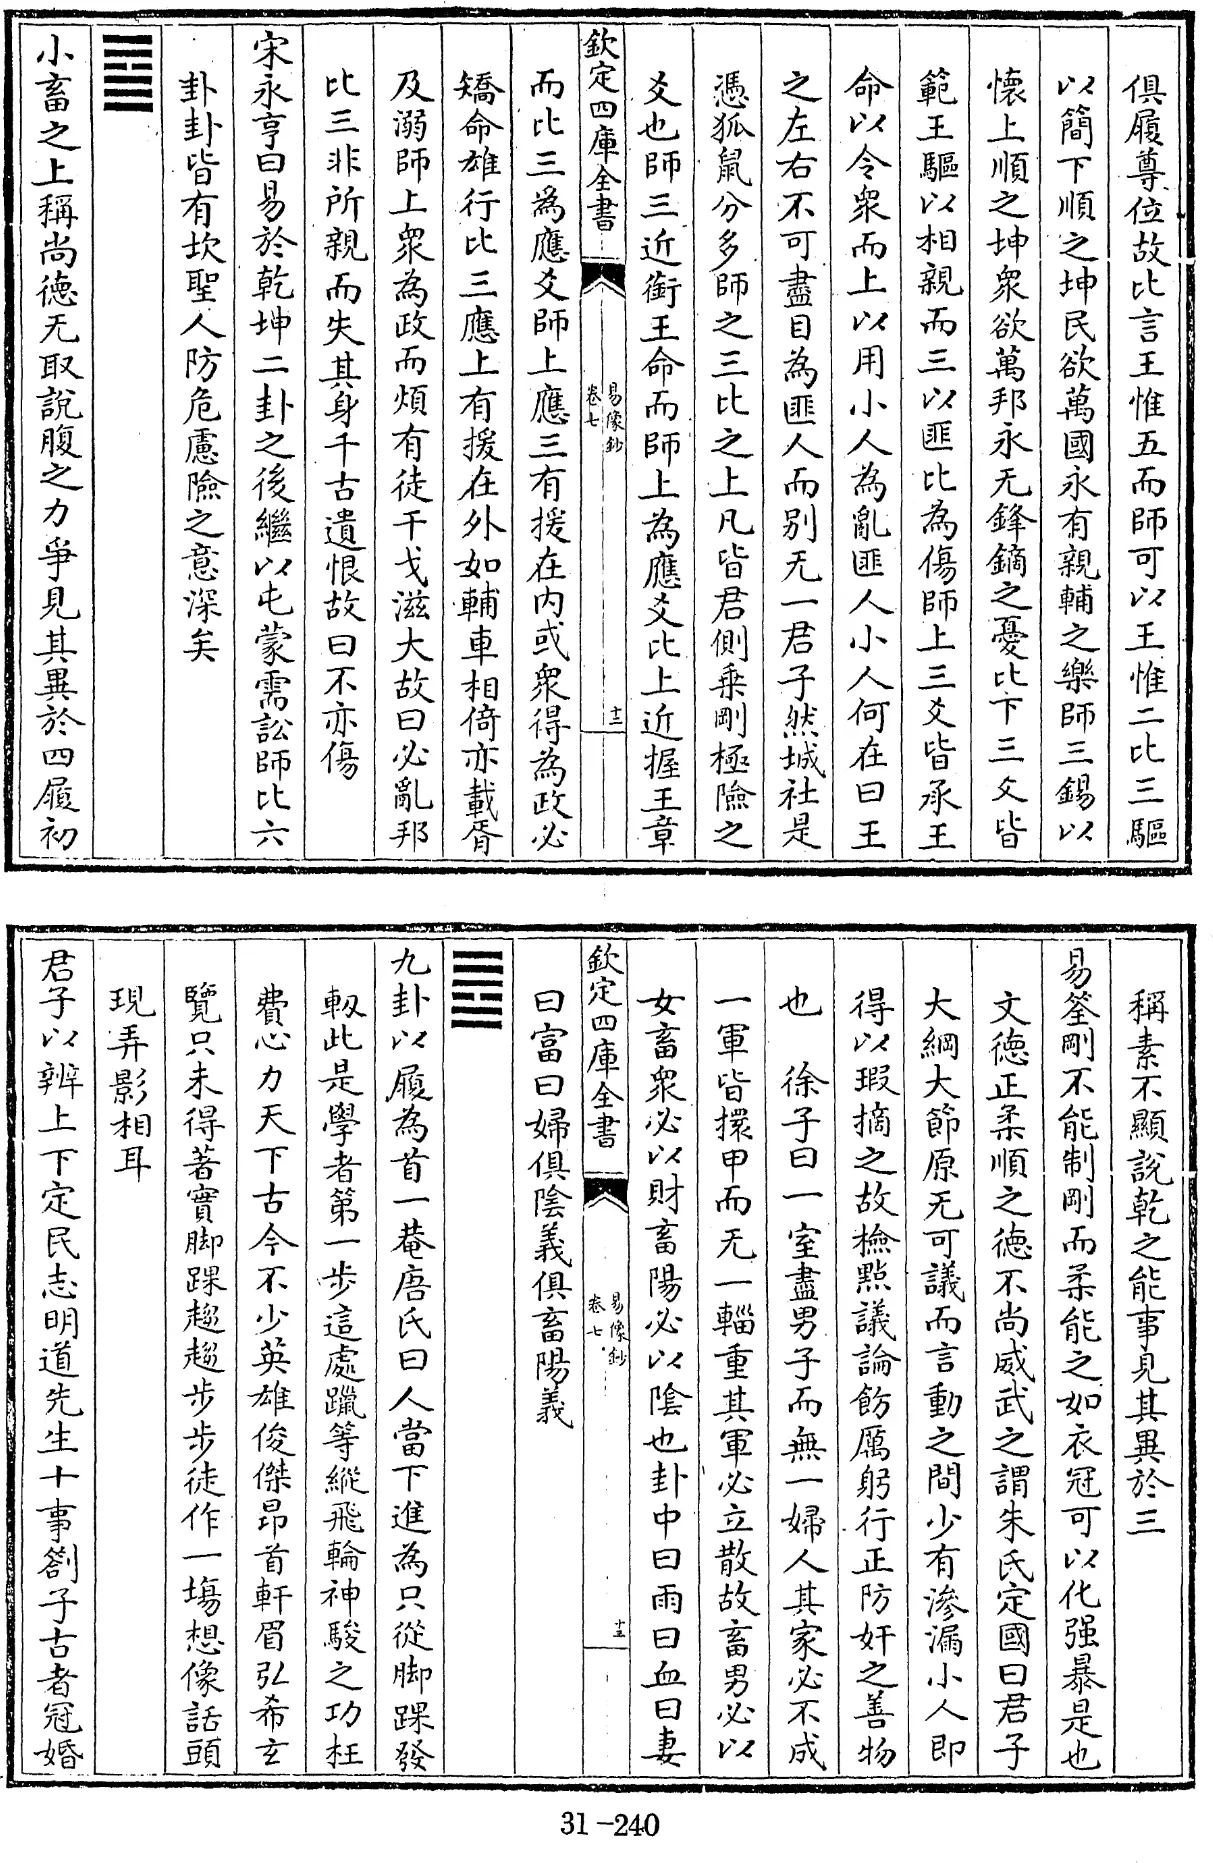 俱履尊位故比言王惟五而師可以王惟二比三驅
以簡下順之坤民欲萬國永有親輔之樂師三錫以
懷上順之坤衆欲萬邦永无鋒鏑之憂比下三爻皆
範王驅以相親而三以匪比為傷師上三爻皆承王
命以令衆而上以用小人為亂匪人小人何在曰王
之左右不可盡目為匪人而别无一君子然城社是
憑狐鼠分多師之三比之上凡皆君側乗剛極險之
爻也師三近銜王命而師上為應爻比上近握王章
欽定四庫全書
易像鈔
卷七
十二
而比三為應爻師上應三有援在内或衆得為政必
矯命雄行比三應上有援在外如輔車相倚亦載胥
及溺師上衆為政而煩有徒干戈滋大故曰必亂邦
比三非所親而失其身千古遺恨故曰不亦傷
宋永亨曰易於乾坤二卦之後繼以屯蒙需訟師比六
卦卦皆有坎聖人防危慮險之意深矣
䷈
小畜之上稱尚德无取說腹之力爭見其異於四履初
稱素不顯說乾之能事見其異於三
易筌剛不能制剛而柔能之如衣冠可以化强暴是也
文德正柔順之德不尚威武之謂朱氏定國曰君子
大綱大節原无可議而言動之間少有滲漏小人即
得以瑕摘之故檢點議論飭厲躬行正防奸之善物
也　徐子曰一室盡男子而無一婦人其家必不成
一軍皆擐甲而无一輜重其軍必立散故畜男必以
女畜衆必以財畜陽必以陰也卦中曰雨曰血曰妻
欽定四庫全書
易像鈔
卷七
十三
曰富曰婦俱陰義俱畜陽義
䷉
九卦以履為首一菴唐氏曰人當下進為只從脚踝發
軔此是學者第一步這處躐等縱飛輪神駿之功枉
費心力天下古今不少英雄俊傑昂首軒眉弘希玄
覽只未得著實脚踝趍趍步步徒作一塲想像話頭
現弄影相耳
君子以辨上下定民志明道先生十事劄子古者冠婚
31-240